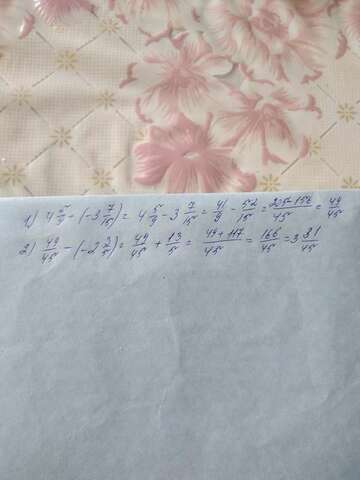 1) 4 5/9 - (-3 7/15) = 4 5/9 - 3 7/15 = 41/9 - 52/15 = 205-156/45 = 49/45
2) 49/45 - (-2 3/5) = 49/45 + 13/5 = 49+117/45 = 166/45 = 3 31/45